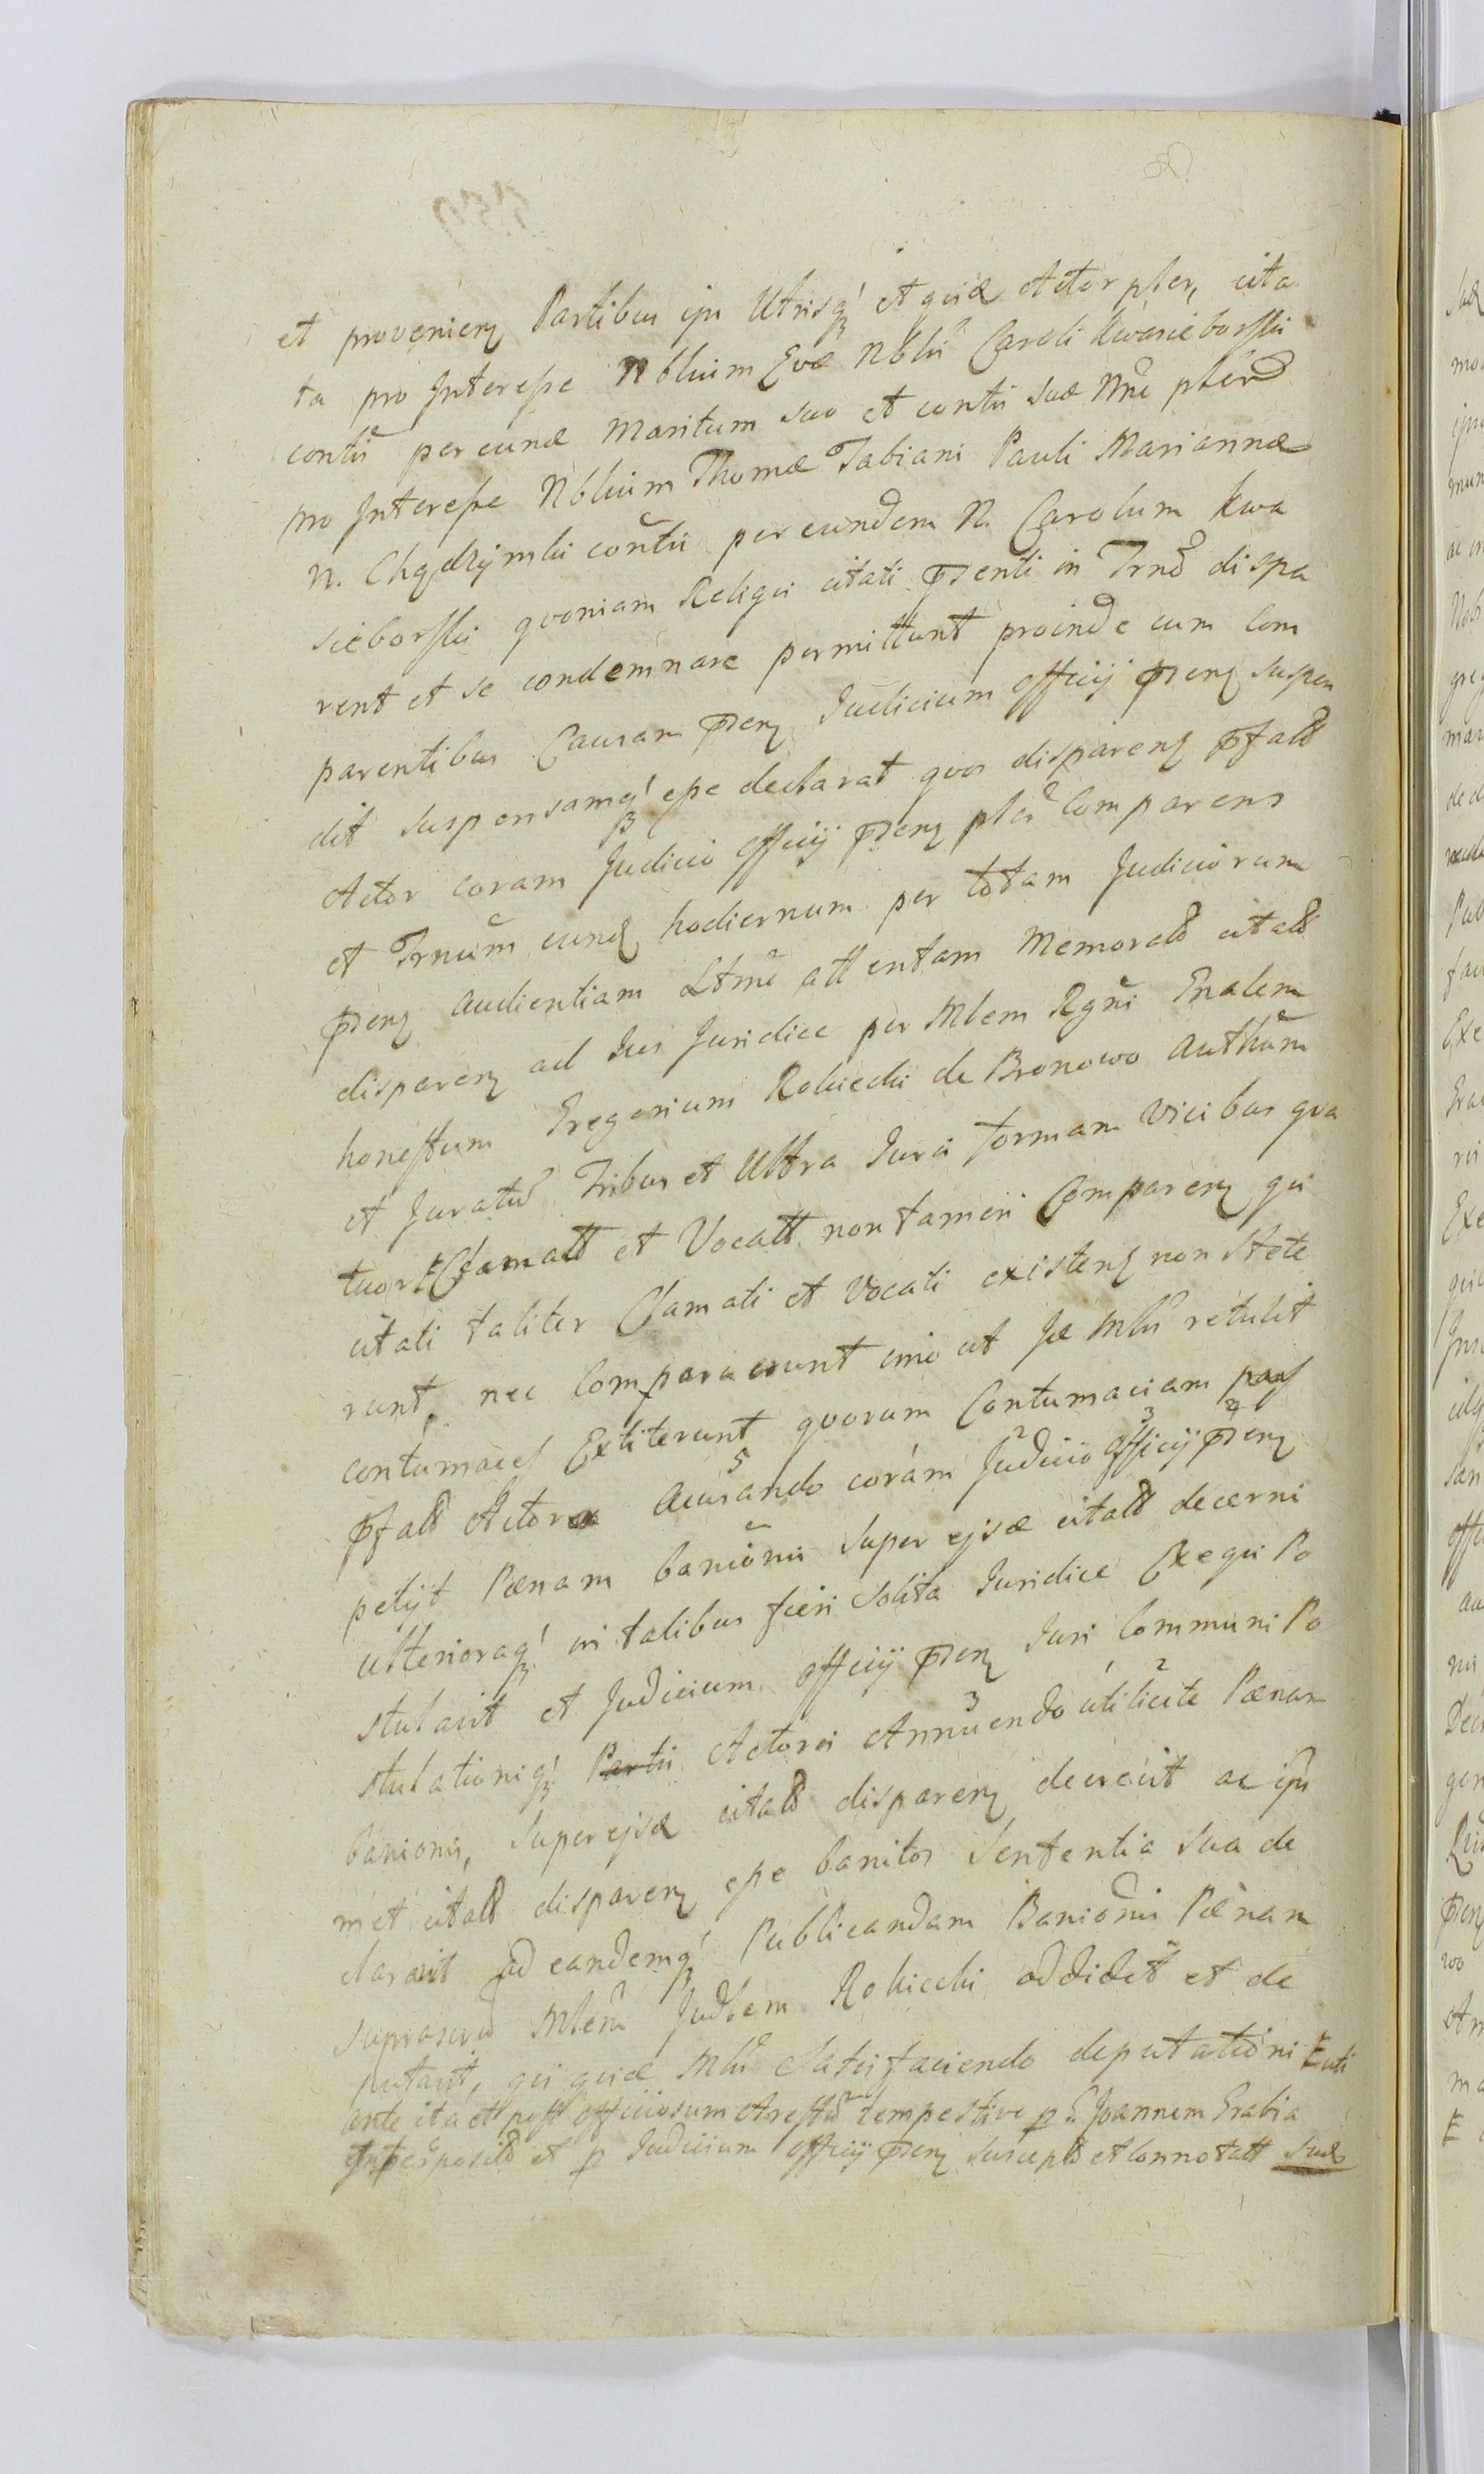 et provenien Partibus ipsis Utrisq et quidem Actor pter, cita
ta pro Interesse Nblium Evæ Nblis Caroli Kwasieborski
contis per eund Maritum suo et contis suæ Nne pter
pro Interesse Nblium Thomæ Fabiani Pauli Mariannæ
N. Chądzymski contis per eundem N. Carolum Kwa
sieborski quoniam Religii citati præsenti in Trno dispa
rent et se condemnare permittunt proinde cum Com
parentibus Causam præsen Judicium officij præsen suspen
dit suspensamq esse declarat quos disparen præfatt
Actor coram Judicio officij præsen pter Comparens
et Trnum eund hodiernum per totam Judiciorum
præsen audientiam Ltme attentam Memoratt citatt
disparen ad Jus Juridice per Mlem Regni Gnalem
honestum Gregorium Rokicki de Bronowo Authum
et Juratu Tribus et Ultra Juris formam vicibus qua
tuor Clamatt et Vocatt non tamen Comparen qui
citati taliter Clamati et Vocati existen non stete
runt, nec Comparuerunt imo ut Je Mlis retulit
contumaces Extiterunt quorum Contumaciam pars
præfatt Actorea Accusando coram Judicio officij præsen
5 2 3 4
petijt Pænam Banionis super ejsd citatt decerni
ulterioraq in talibus fieri solita Juridice Exequi Po
stulavit et Judicium officij præsen Juri Communi Po
stulationiq Partis Actorei Annuendo utilicite Pænam
3 1 2
Banionis, super ejsd citatt disparen decrevit ac ipsos
met citatt disparen esse banitos Sententia sua de
claravit ad eandemq Publicandam Banionis Pænam
suprascrip Mlem Judlem Rokicki addidit et de
putavit, qui quid Mlis Satisfaciendo deputationi uti
ante ita et post officiosum Arestu tempestive p G. Joannem Grabia
Interposit et p Judicium officij præsen suscept et Connotatt Suæ